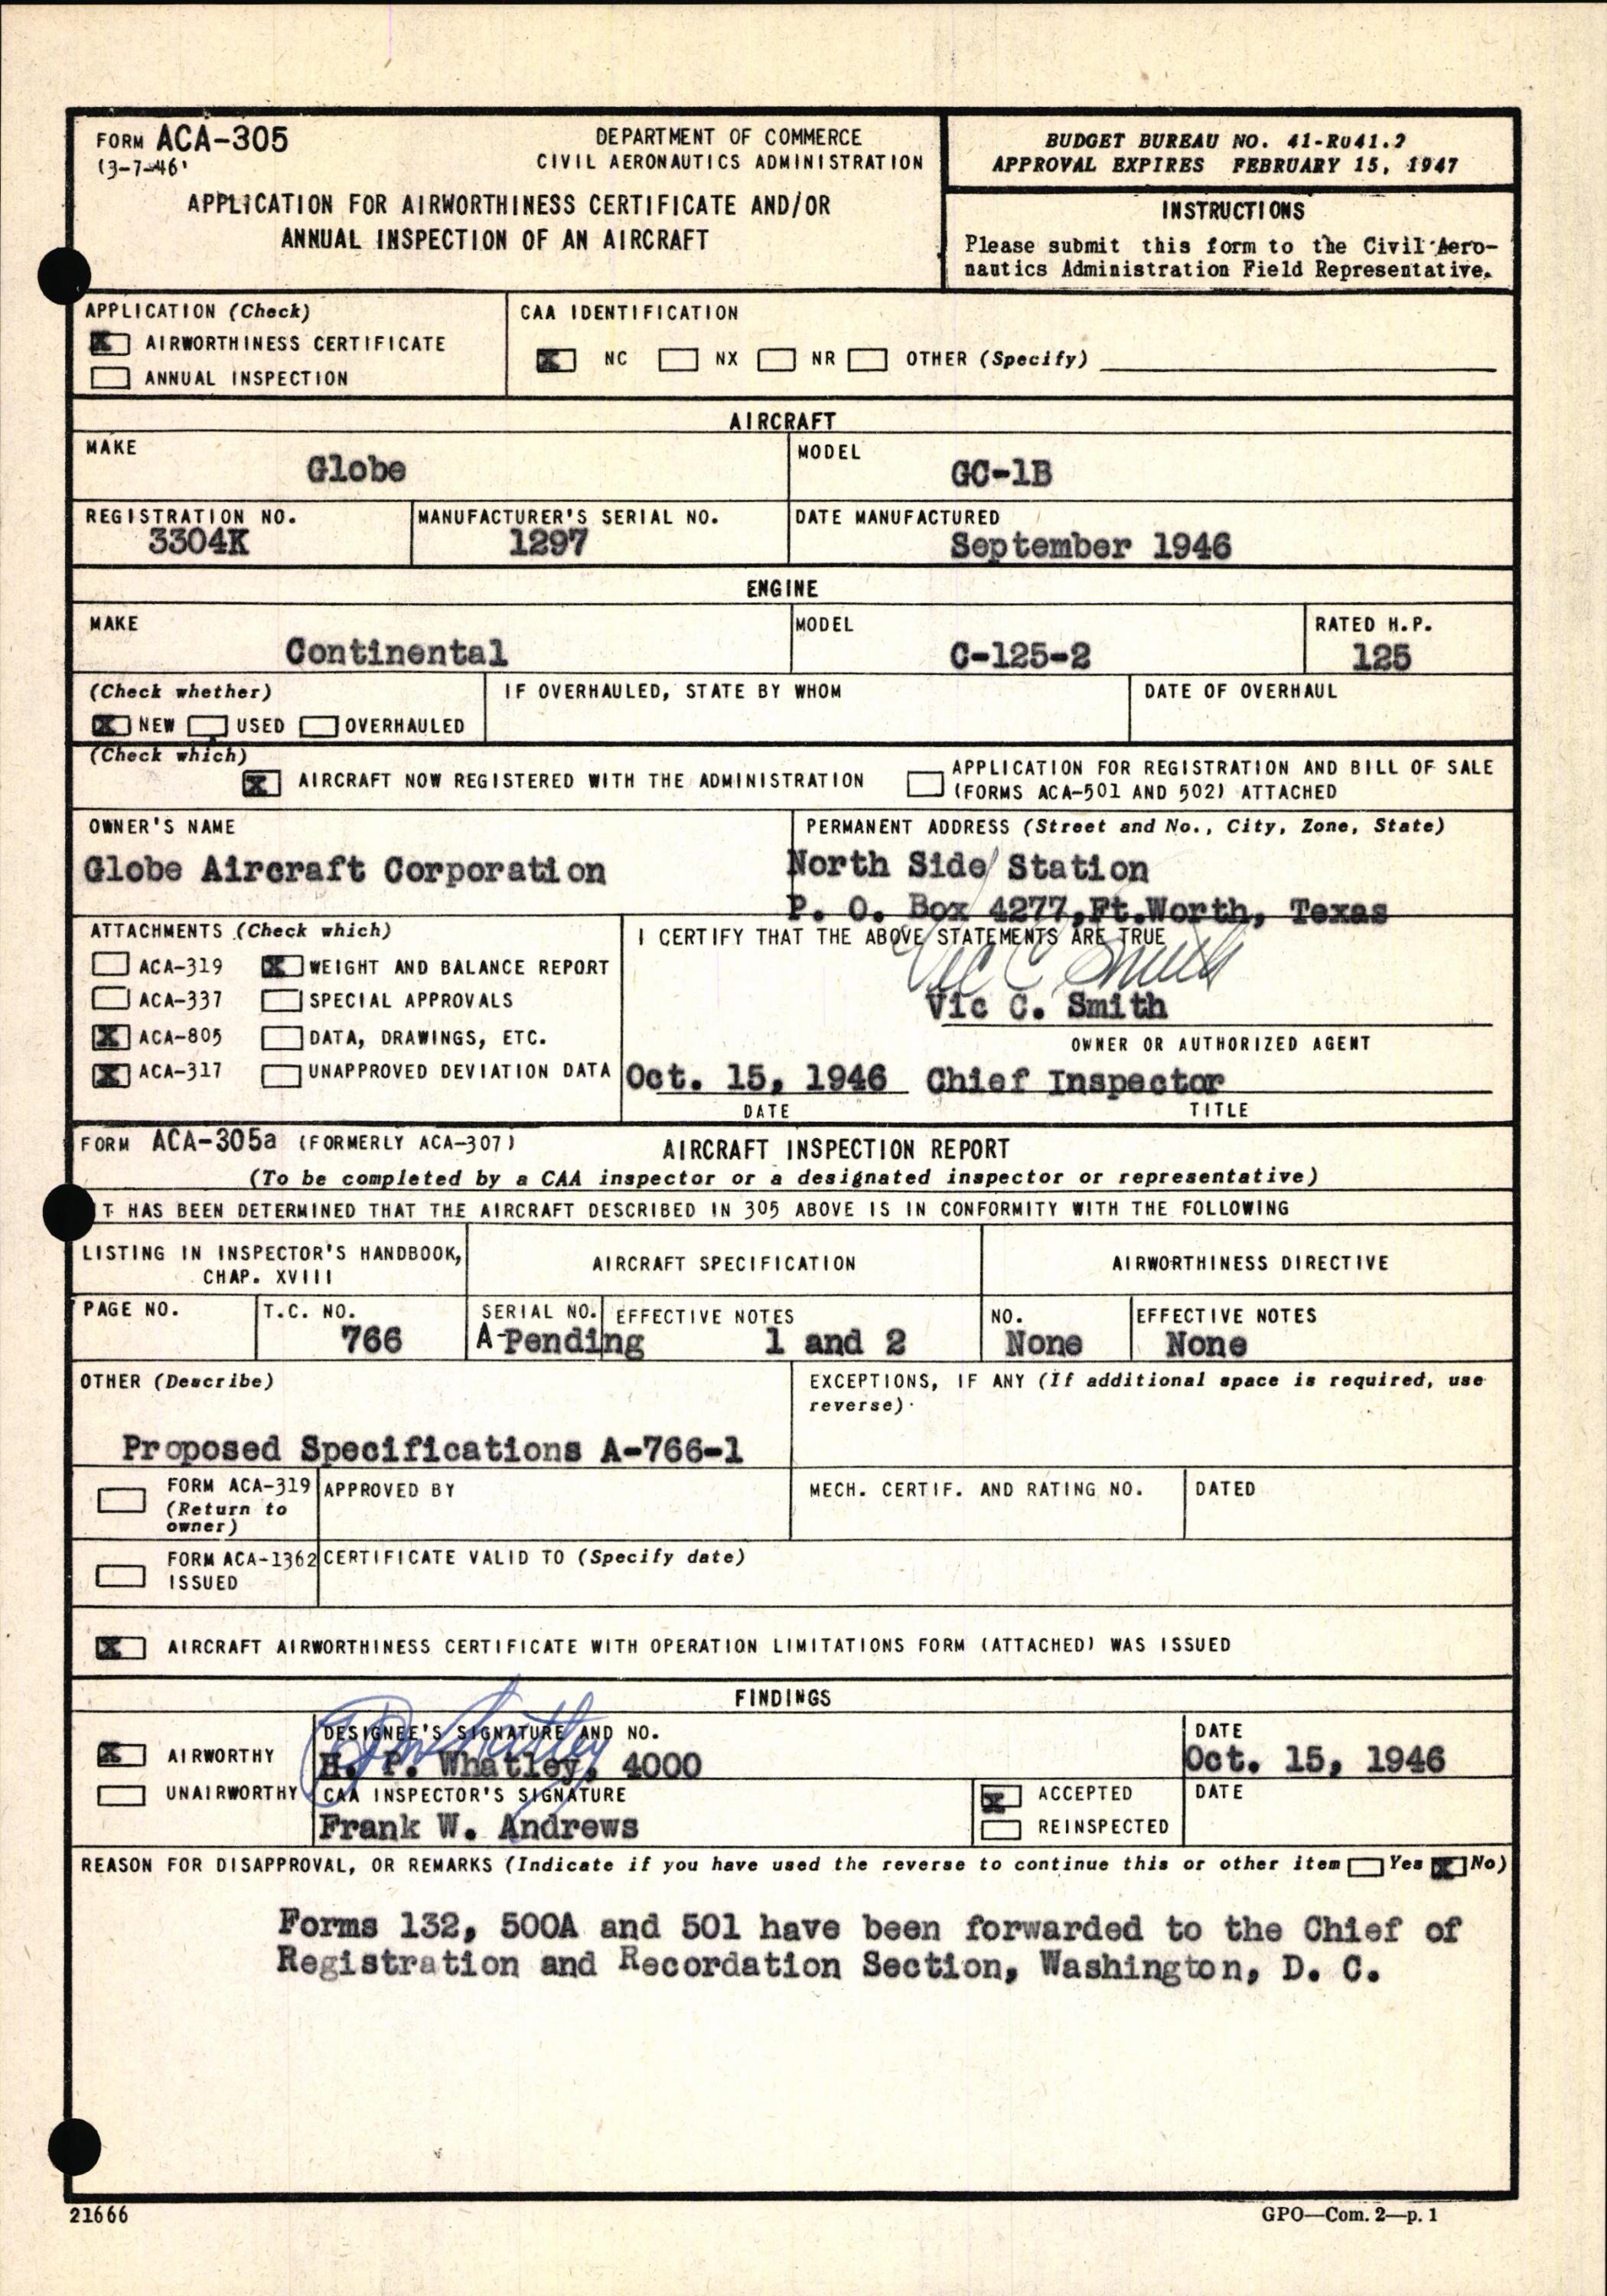 FORM ACA-305
(3-7-46)
DEPARTMENT OF COMMERCE
CIVIL AERONAUTICS ADMINISTRATION
APPLICATION FOR AIRWORTHINESS CERTIFICATE AND/OR
ANNUAL INSPECTION OF AN AIRCRAFT
BUDGET BUREAU NO. 41-R041.2
APPROVAL EXPIRES FEBRUARY 15, 1947
INSTRUCTIONS
Please submit this form to the Civil Aero-
nautics Administration Field Representative.
APPLICATION (Check)
X AIRWORTHINESS CERTIFICATE
ANNUAL INSPECTION
CAA IDENTIFICATION
X NC NX NR OTHER (Specify)
AIRCRAFT
MAKE
Globe
MODEL
GC-1B
REGISTRATION NO.
3304K
MANUFACTURER'S SERIAL NO.
1297
DATE MANUFACTURED
September 1946
ENGINE
MAKE
Continental
MODEL
C-125-2
RATED H.P.
125
(Check whether)
X NEW USED OVERHAULED
IF OVERHAULED, STATE BY WHOM
DATE OF OVERHAUL
(Check which)
X AIRCRAFT NOW REGISTERED WITH THE ADMINISTRATION
APPLICATION FOR REGISTRATION AND BILL OF SALE
(FORMS ACA-501 AND 502) ATTACHED
OWNER'S NAME
Globe Aircraft Corporation
PERMANENT ADDRESS (Street and No., City, Zone, State)
North Side Station
P. O. Box 4277, Ft. Worth, Texas
ATTACHMENTS (Check which)
ACA-319 X WEIGHT AND BALANCE REPORT
ACA-337 SPECIAL APPROVALS
X ACA-805 DATA, DRAWINGS, ETC.
X ACA-317 UNAPPROVED DEVIATION DATA
I CERTIFY THAT THE ABOVE STATEMENTS ARE TRUE
Vic C Smith
Vic C. Smith
OWNER OR AUTHORIZED AGENT
Oct. 15, 1946 Chief Inspector
DATE TITLE
FORM ACA-305a (FORMERLY ACA-307) AIRCRAFT INSPECTION REPORT
(To be completed by a CAA inspector or a designated inspector or representative)
IT HAS BEEN DETERMINED THAT THE AIRCRAFT DESCRIBED IN 305 ABOVE IS IN CONFORMITY WITH THE FOLLOWING
LISTING IN INSPECTOR'S HANDBOOK,
CHAP. XVIII
AIRCRAFT SPECIFICATION
AIRWORTHINESS DIRECTIVE
PAGE NO.
T.C. NO.
766
SERIAL NO.
A-Pending
EFFECTIVE NOTES
1 and 2
NO.
None
EFFECTIVE NOTES
None
OTHER (Describe)
Proposed Specifications A-766-1
EXCEPTIONS, IF ANY (If additional space is required, use
reverse).
FORM ACA-319
(Return to
owner)
APPROVED BY
MECH. CERTIF. AND RATING NO.
DATED
FORM ACA-1362
ISSUED
CERTIFICATE VALID TO (Specify date)
X AIRCRAFT AIRWORTHINESS CERTIFICATE WITH OPERATION LIMITATIONS FORM (ATTACHED) WAS ISSUED
FINDINGS
X AIRWORTHY
UNAIRWORTHY
DESIGNEE'S SIGNATURE AND NO.
H. P. Whatley, 4000
DATE
Oct. 15, 1946
CAA INSPECTOR'S SIGNATURE
Frank W. Andrews
X ACCEPTED
REINSPECTED
DATE
REASON FOR DISAPPROVAL, OR REMARKS (Indicate if you have used the reverse to continue this or other item Yes X No)
Forms 132, 500A and 501 have been forwarded to the Chief of
Registration and Recordation Section, Washington, D. C.
21666
GPO—Com. 2—p. 1